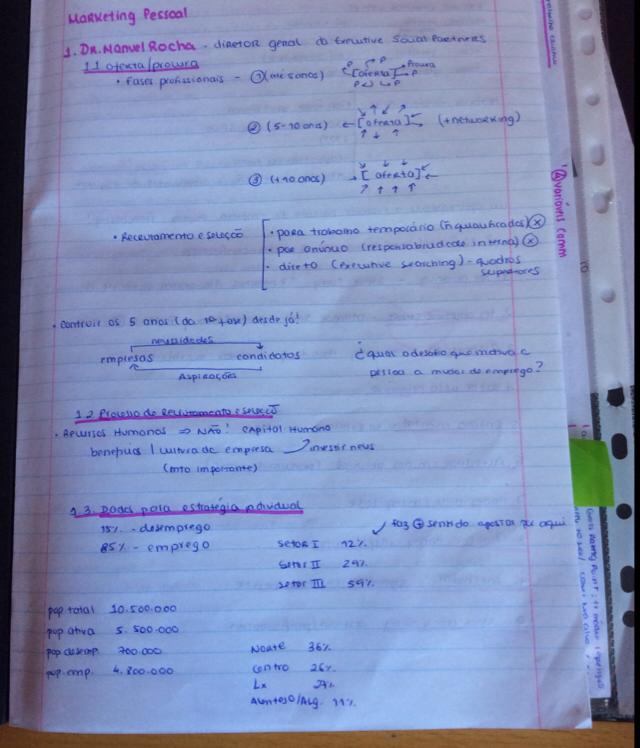 Marketing Pessoal
1. Dr. Manuel Rocha - diretor geral da Executive Social Partners
1.1 oferta/procura
• Fases profissionais - ① (até 5 anos) [oferta] P P P Procura P P P
② (5-10 anos) [oferta] (+networking)
③ (+10 anos) [oferta]
• Recrutamento e seleção
• para trabalho temporário (ñ qualificados) ⓧ
• por anúncio (responsabilidade interna) ⓧ
• direto (executive searching) - quadros superiores
• Contruir os 5 anos (da 1ª fase) desde já!
necessidades
empresas candidatos
Aspirações
¿qual o desafio que motiva a pessoa a mudar de emprego?
1.2 Processo de Recrutamento e seleção
• Recursos Humanos ⇒ NÃO! Capital Humano
benefícios / cultura de empresa investir neles
(mto importante)
1.3. Dados para estratégia individual
15% - desemprego
85% - emprego
faz + sentido apostar por aqui
Setor I 12%
Setor II 29%
Setor III 59%
pop. total 10.500.000
pop. ativa 5.500.000
pop. desemp. 700.000
pop. emp. 4.800.000
Norte 36%
Centro 26%
Lx 27%
Alentejo/Alg. 11%
② Variáveis Comm